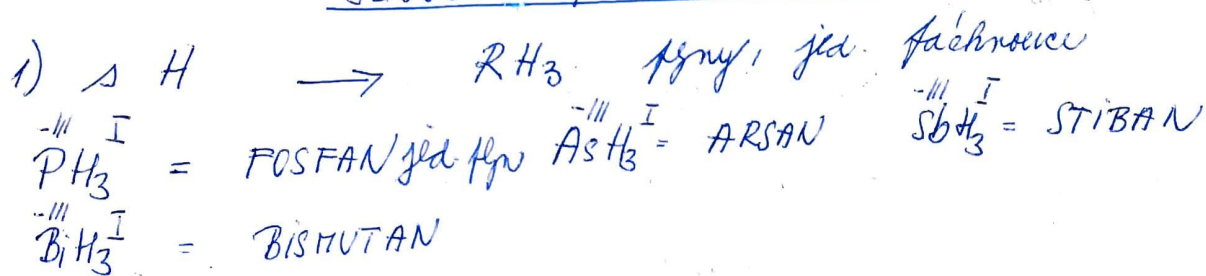 1) s H → RH3 plyny, jed. páchnoucí
P^-III H3^I = FOSFAN jed. plyn As^-III H3^I = ARSAN Sb^-III H3^I = STiBAN
Bi^-III H3^I = BiSMUTAN